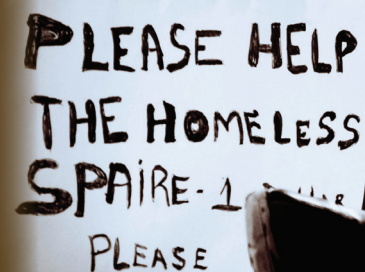 PLEASE HELP
THE HOMELESS
SPAIRE-1
PLEASE